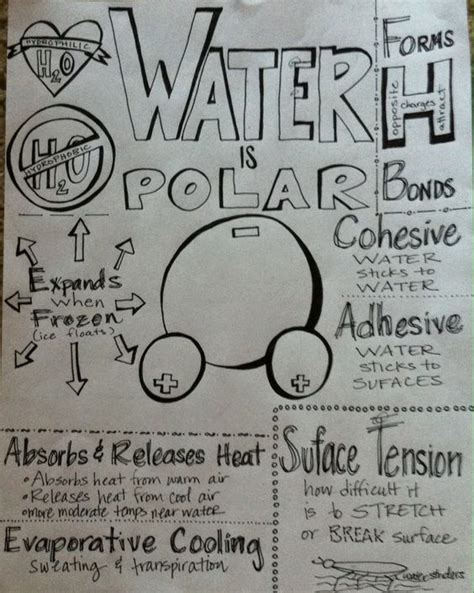 HYDROPHILIC
H₂O
HYDROPHOBIC
H₂O
WATER
is
POLAR
FORMS
H
opposite
charges
attract
BONDS
Expands
when
Frozen
(ice floats)
−
+
+
Cohesive
WATER
sticks to
WATER
Adhesive
WATER
sticks to
SUFACES
Absorbs & Releases Heat
• Absorbs heat from warm air
• Releases heat from cool air
• more moderate temps near water
Evaporative Cooling
sweating & transpiration
Suface Tension
how difficult it
is to STRETCH
or BREAK surface
water striders